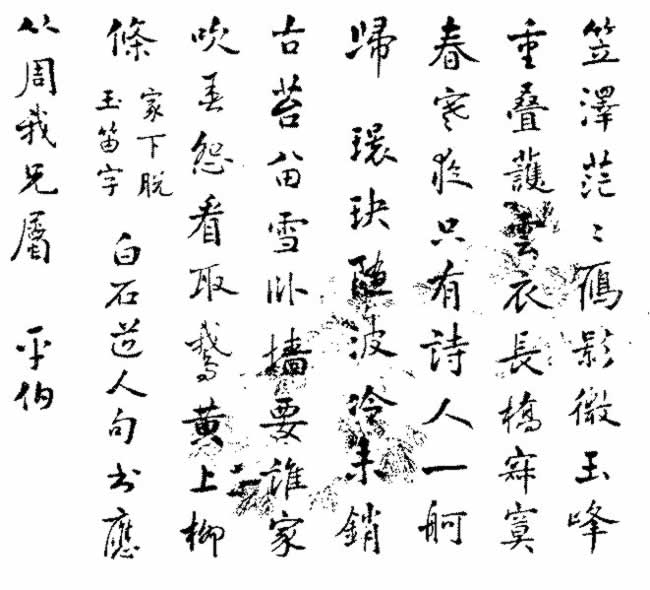 笠澤茫〻鴈影微玉峰
重叠護雲衣長橋寂寞
春寒夜只有詩人一舸
歸 環玦隨波冷未銷
古苔留雪卧墻要誰家
吹春怨看取鵞黃上柳
條
家下脱
玉笛字
白石道人句书應
从周我兄屬 平伯